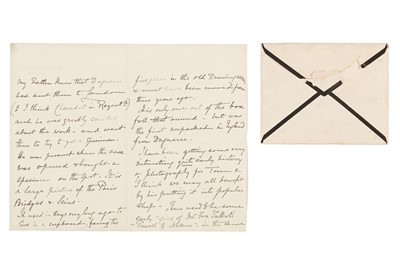 My Father knew that Daguerre
had sent them to London
(& I think Claudet in Regent St)
and he was greatly excited
about the work - and went
then to try to get a specimen.
He was present when the case
was opened & bought a
specimen on the spot. It is
a large picture of the Paris
Bridges & Seine.
It used in days long ago to
live in a cupboard, facing the
fireplace in the old Drawing room
& must have been moved
three years ago.
It is only one out of the box
full that arrived; but was
the first unpacked in England
from Daguerre.
I have been getting some very
interesting quite early history
of photography for
I think we may all benefit
by his putting it into popular
shape. There used to be some
early copies of Mr Fox Talbot's
"Pencil of Nature" in the